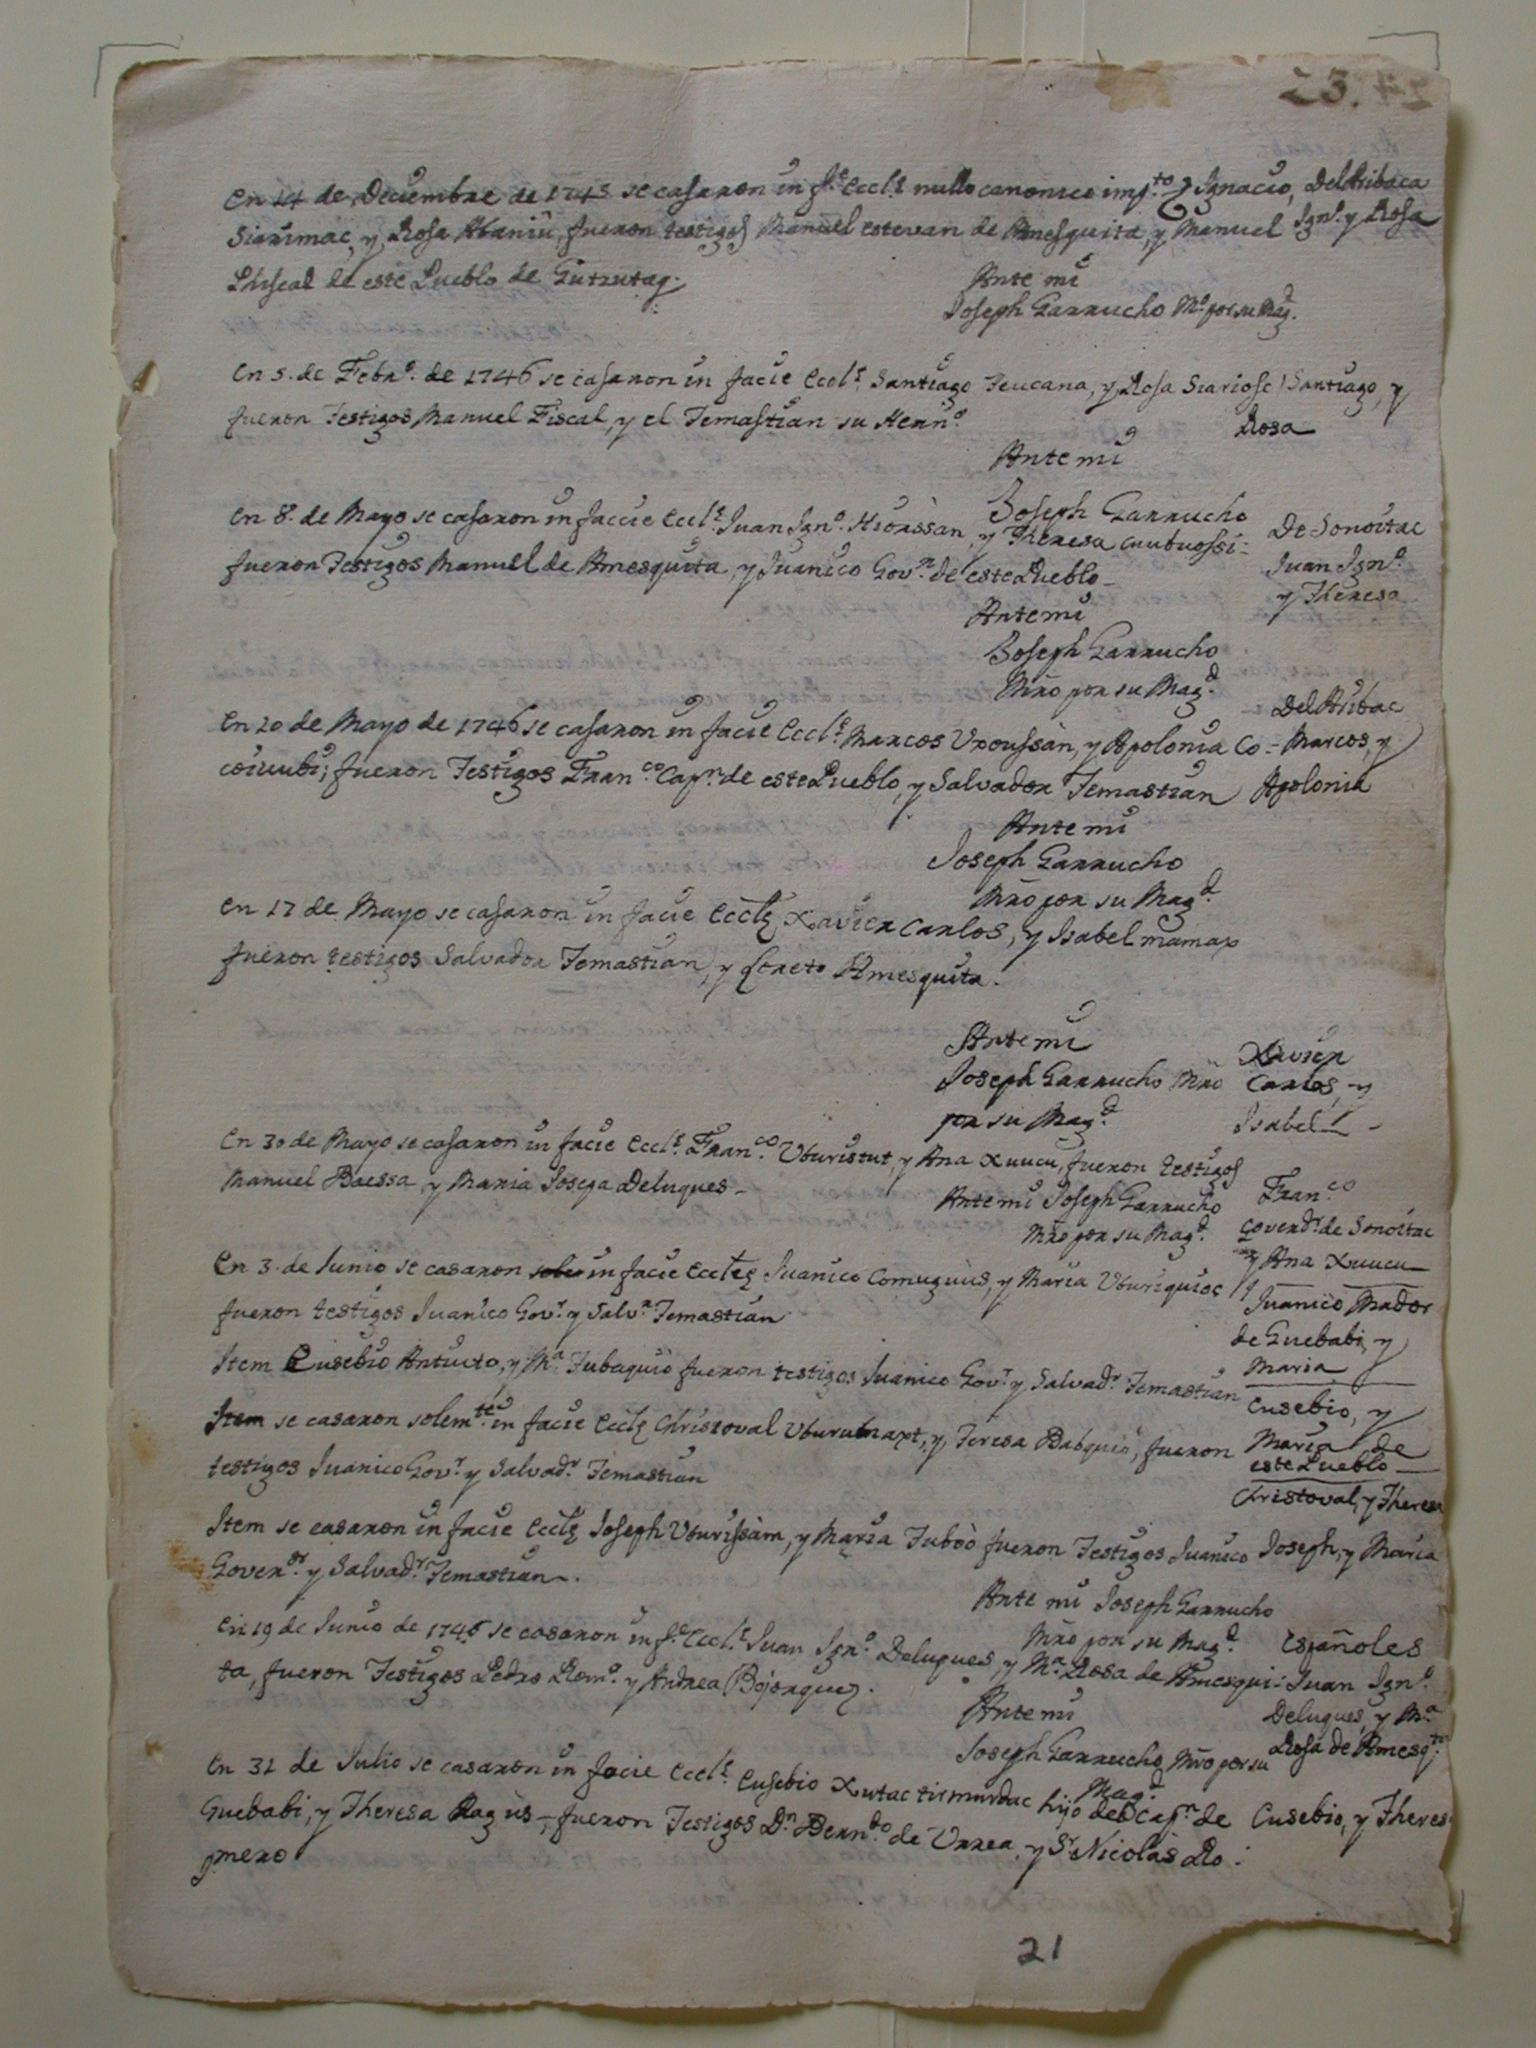 24. 23
En 14 de Deciembre de 1745 se casaron in f.e Eccl.e nullo canonico imp.to Ignacio, Del Aribaca
Siarimac, y Rosa Abaniu, fueron testigos Manuel estevan de Amesquita, y Manuel Ign.o y Rosa
Phiscal de este Pueblo de Gutzutaq.
Ante mi
Joseph Garrucho M.o por su Mag.d
En 5. de Febr.o de 1746 se casaron in facie Eccl.e Santiago Teucana, y Rosa Siariose / Santiago, y
fueron Testigos Manuel Fiscal, y el Temastian su Herm.o Rosa
Ante mi
Joseph Garrucho
En 8. de Mayo se casaron in faccie Eccl.e Juan Ign.o Hiorissan, y Theresa cnubuossi= De Sonoitac
fueron Testigos Manuel de Amesquita, y Juanico Gov.r de este Pueblo Juan Ign.o
y Theresa
Ante mi
Joseph Garrucho
Mro por su Mag.d
En 20 de Mayo de 1746 se casaron in facie Eccl.e Marcos Upoussan, y Apolonia Co= Del Aribac
Marcos, y
coiuubi; fueron Testigos Fran.co Cap.n de este Pueblo, y Salvador Temastian Apolonia
Ante mi
Joseph Garrucho
Mro por su Mag.d
En 17 de Mayo se casaron in facie Eccle Xavier Carlos, y Isabel mamax
fueron testigos Salvador Temastian, y Loreto Amesquita.
Ante mi Xavier
Joseph Garrucho Mro Carlos, y
por su Mag.d Isabel
En 30 de Mayo se casaron in facie Eccl.e Fran.co Uburistut, y Ana Xuucu, fueron testigos
Manuel Baessa, y Maria Josepa Deluques
Ante mi Joseph Garrucho Fran.co
Mro por su Mag.d Governd.r de Sonoitac
y Ana Xuucu
En 3. de Junio se casaron in facie Eccle Juanico Comuguius, y Maria Uburiquioc
fueron testigos Juanico Gov.r y Salv.r Temastian
Juanico Mador
de Guebabi, y
Maria
Item Eusebio Antucto, y M.a Tubaquio fueron testigos Juanico Gov.r y Salvad.r Temastian
Eusebio, y
Maria de
este Pueblo
Item se casaron solem.te in facie Eccle Christoval Uburubapt, y Teresa Babquio, fueron
testigos Juanico Gov.r y Salvad.r Temastian
Christoval, y Theresa
Item se casaron in facie Eccle Joseph Uburissam, y Maria Tuboo fueron Testigos Juanico Joseph, y Maria
Govern.or y Salvad.r Temastian.
Ante mi Joseph Garrucho
Mro por su Mag.d
En 19 de Junio de 1746 se casaron in f.e Eccl.e Juan Ign.o Deluques, y M.a Rosa de Amesqui= Españoles
Juan Ign.o
ta, fueron Testigos Pedro Rom.o y Andrea Bojorquez.
Deluques, y M.a
Rosa de Amesq.ta
Ante mi
Joseph Garrucho Mro por su
Mag.d
En 31 de Julio se casaron in facie Eccl.e Eusebio Xutac tirmurdac hijo del Cap.n de Eusebio, y Theres
Guebabi, y Theresa Ragùs, fueron Testigos D.n Bern.do de Urrea, y S.r Nicolas Ro=
mero
21